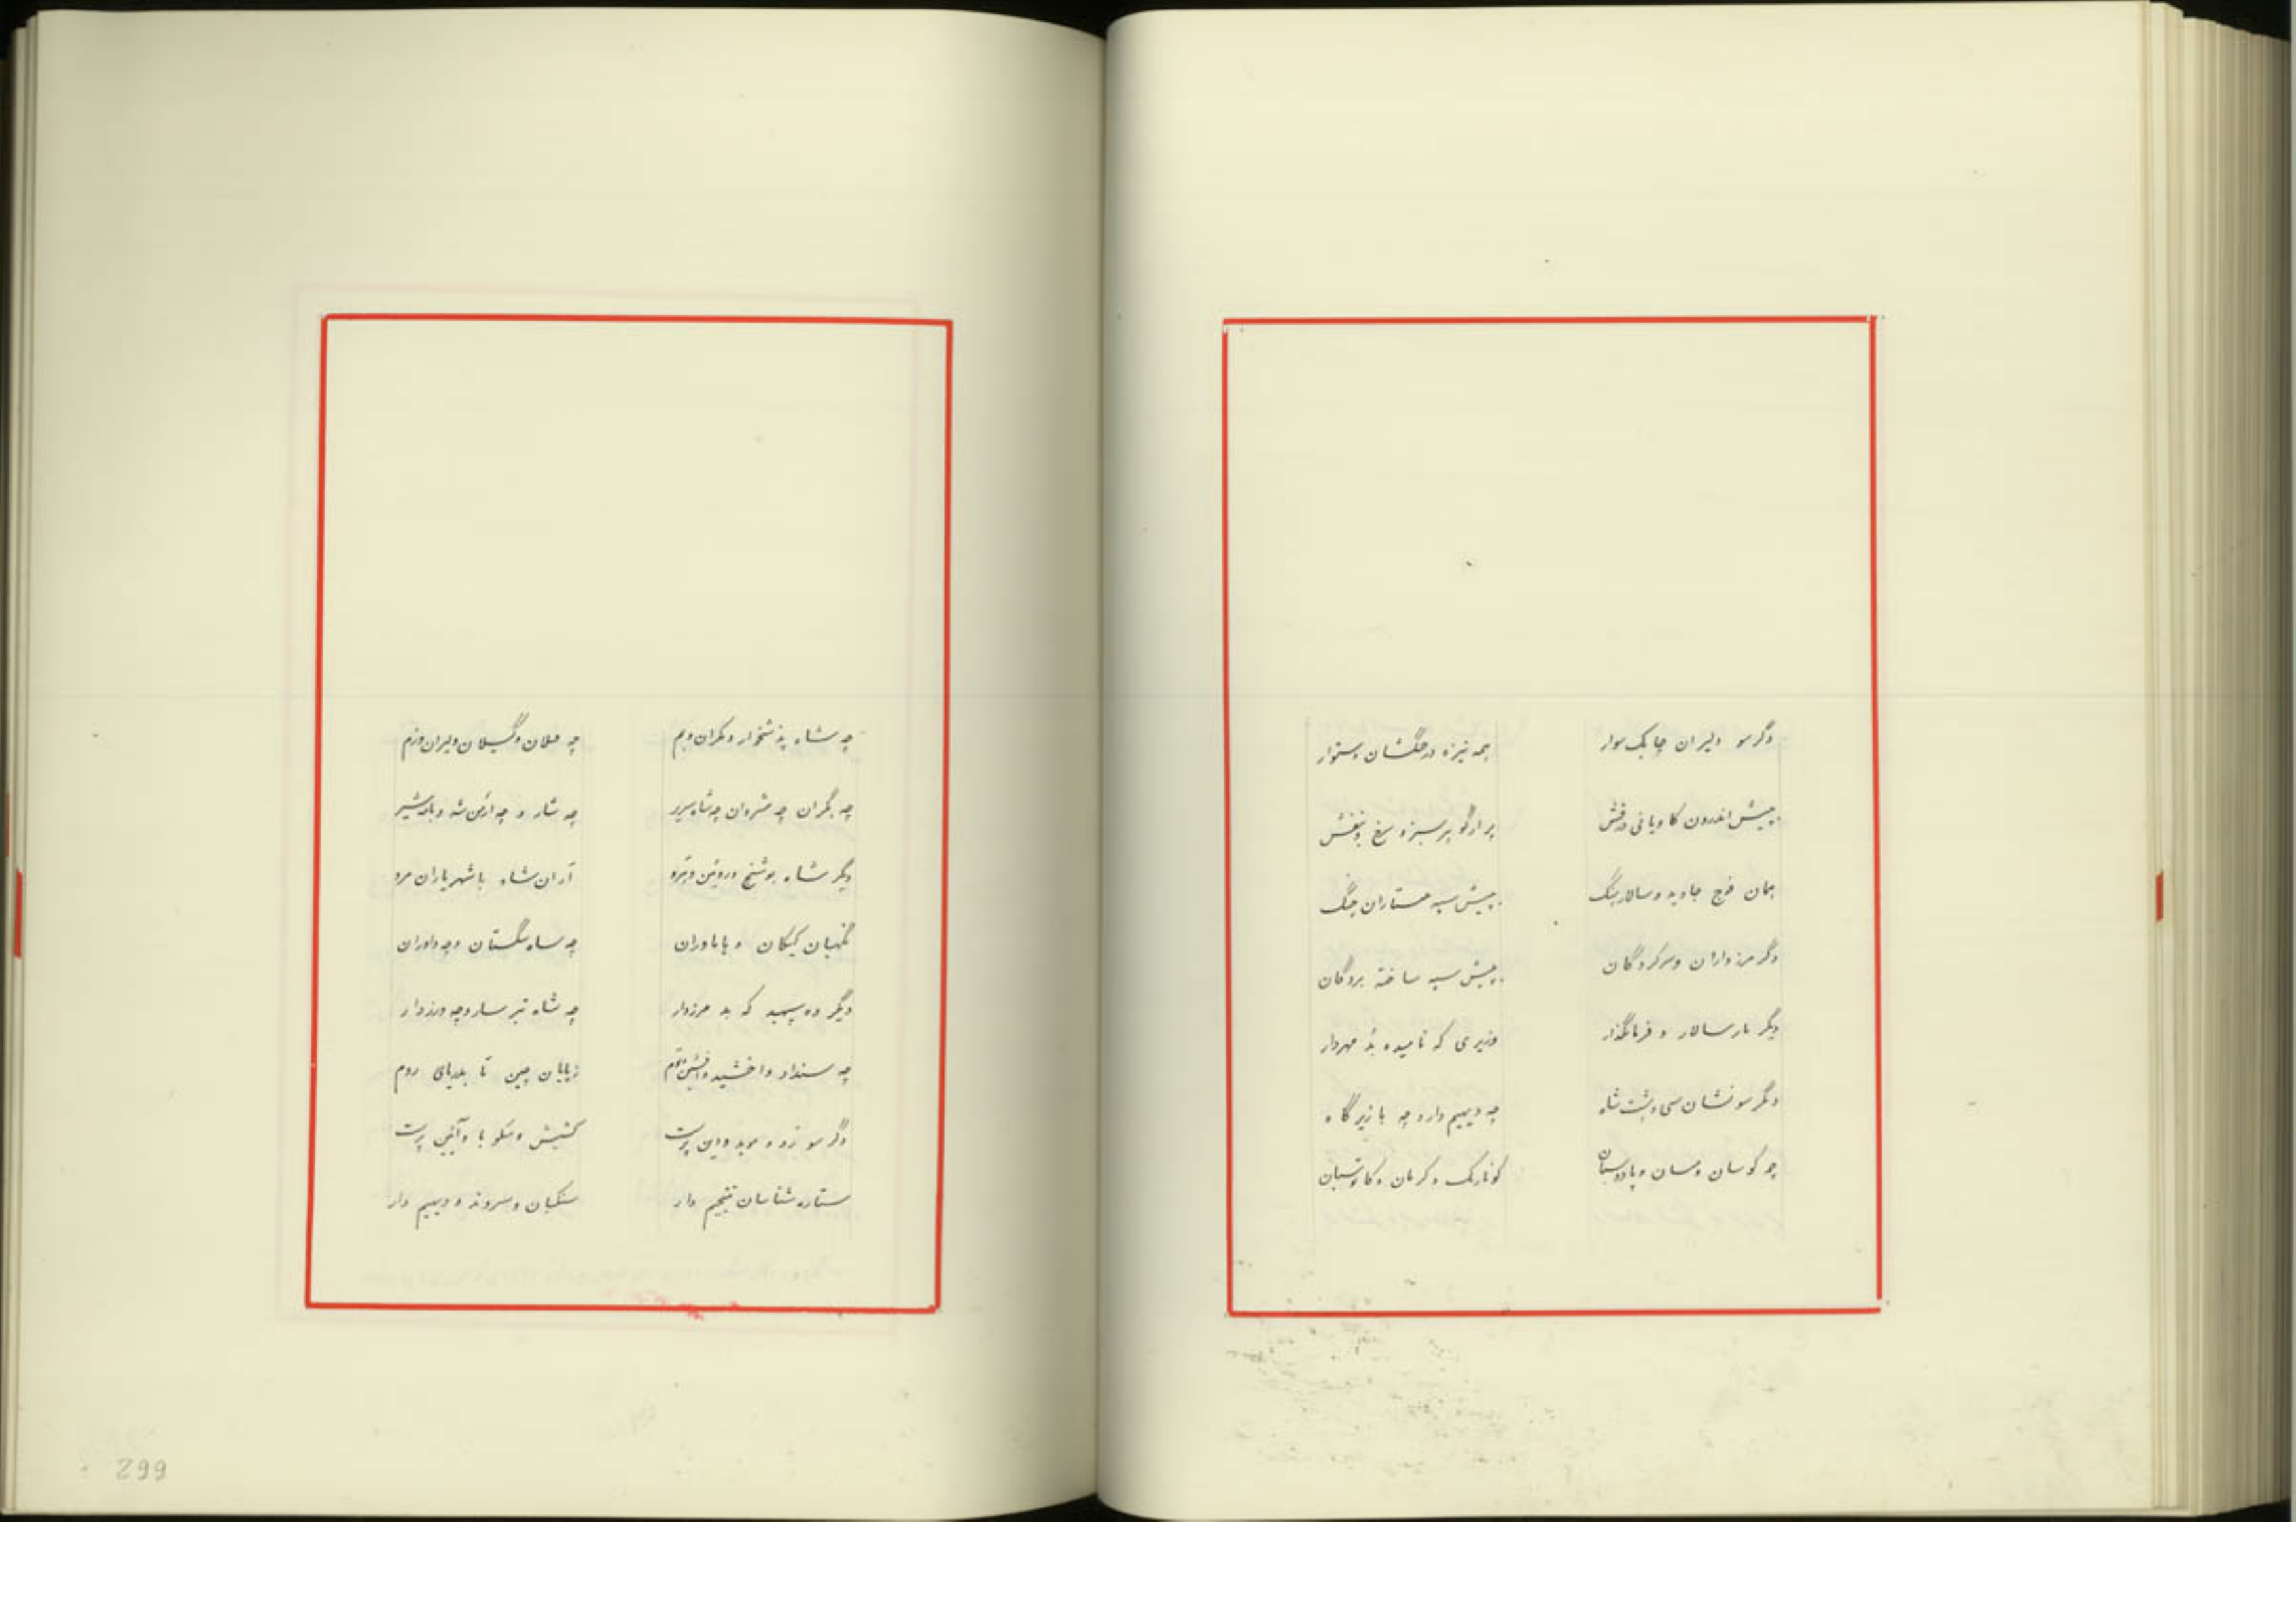 دگر سو دلیران چابک سوار همه نیزه در چنگشان استوار
بپیش اندرون کاویانی درفش پر از گوهر سبزه سرخ و بنفش
همان فوج جاوید و سالار جنگ بپیش سپه جنگ
دگر مرزداران و سرکردگان بپیش سپه ساخته بردگان
دیگر بار سالار و فرمانگذار وزیری که نامیده بد مهردار
دگر سو نشان سی و شت شاه چه دیهیم دار و چه با زیر گاه
چو کوسان و مسان و پادوسبان کنارنگ و کرمان و
چه شاه پذشخوار و مکران و بم چه و گیلان و ایران و رزم
چه گران چه شروان چه شاه سریر چه شار و چه ارمن شه و
دیگر شاه بوشنج و روئین و آران شاه با شهریاران مرو
نگهبان و هاماوران چه ساه سگستان و چه داوران
دیگر ده سپهبد که بد مرزدار چه شاه تبرسار و چه ورزدار
چه سنداد و اخشید و ز یابان چین تا بدریای روم
دگر سو زده موبد و دین پرست کشیش و سکوبا و آئین پرست
ستاره شناسان دار و سروند و دیهیم دار
299